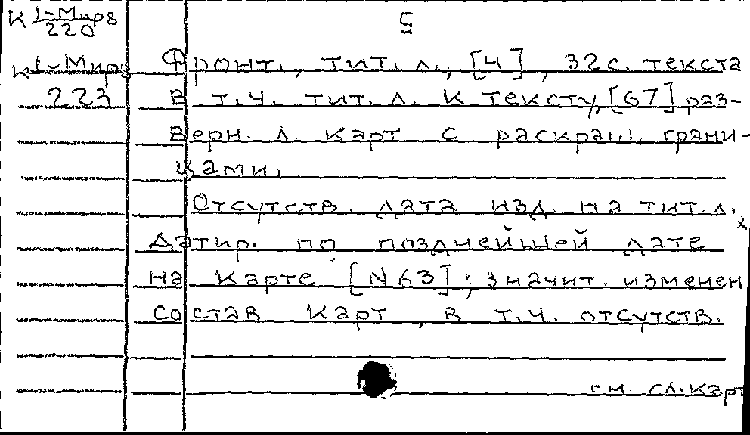 К 1-Мир 8
220
5
К 1-Мир
223
Фронт., тит. л., [4], 32 с. текста
в т.ч. тит. л. к тексту, [67] раз-
верн. л. карт с раскраш. грани-
цами.
Отсутств. дата изд. на тит. л.
Датир. по позднейшей дате
на карте [N 63]; значит. изменен
состав карт, в т.ч. отсутств.
см. сл. карт